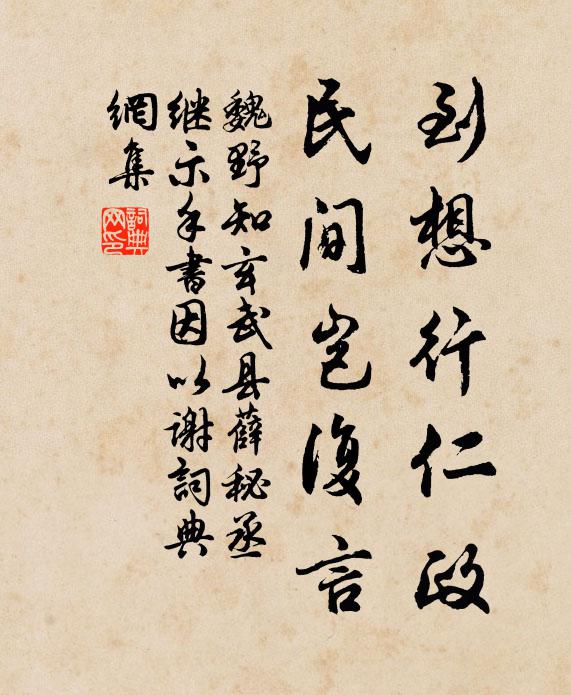 到想行仁政
民间岂復言
魏野知玄武县薛秘丞
继示手书因以谢詞典
網集
詞典
网印